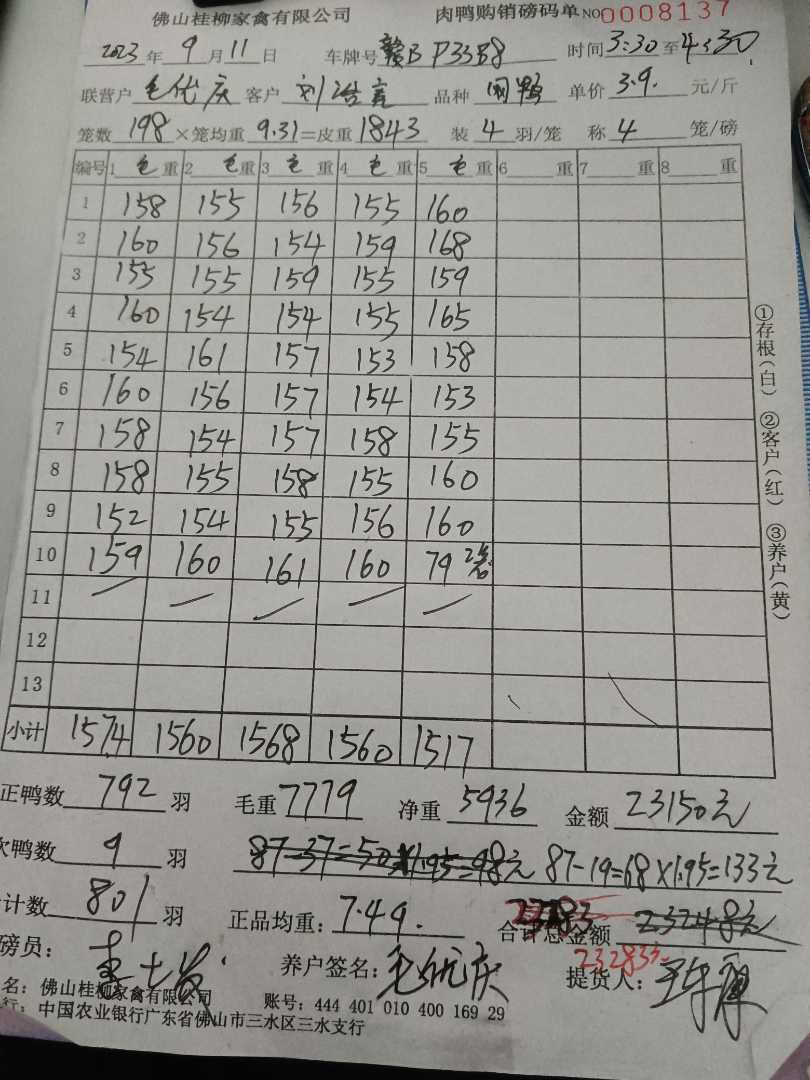 佛山桂柳家禽有限公司 肉鸭购销磅码单 NO 0008137
2023 年 9 月 11 日 车牌号 赣B P33B8 时间 3:30 至 4:30
联营户 毛优庆 客户 品种 单价 3.9. 元/斤
笼数 198 ×笼均重 9.31 =皮重 1843 装 4 羽/笼 称 4 笼/磅
编号 1 毛 重 2 毛 重 3 毛 重 4 毛 重 5 毛 重 6 重 7 重 8 重
1 158 155 156 155 160
2 160 156 154 159 168
3 155 155 159 155 159
4 160 154 154 155 165
5 154 161 157 153 158
6 160 156 157 154 153
7 158 154 157 158 155
8 158 155 158 155 160
9 152 154 155 156 160
10 159 160 161 160 79 2笼
11
12
13
小计 1574 1560 1568 1560 1517
正鸭数 792 羽 毛重 7779 净重 5936 金额 23150元
次鸭数 9 羽 87-37=50×1.95=98元 87-19=68×1.95=133元
计数 801 羽 正品均重: 7.49. 合计总金额 23248元
23283元
磅员: 养户签名: 毛优庆 提货人:
名: 佛山桂柳家禽有限公司 账号: 444 401 010 400 169 29
行: 中国农业银行广东省佛山市三水区三水支行
①存根(白) ②客户(红) ③养户(黄)